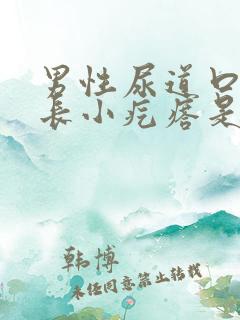 男性尿道口
长小疙瘩是
韩博
未经同意禁止转载